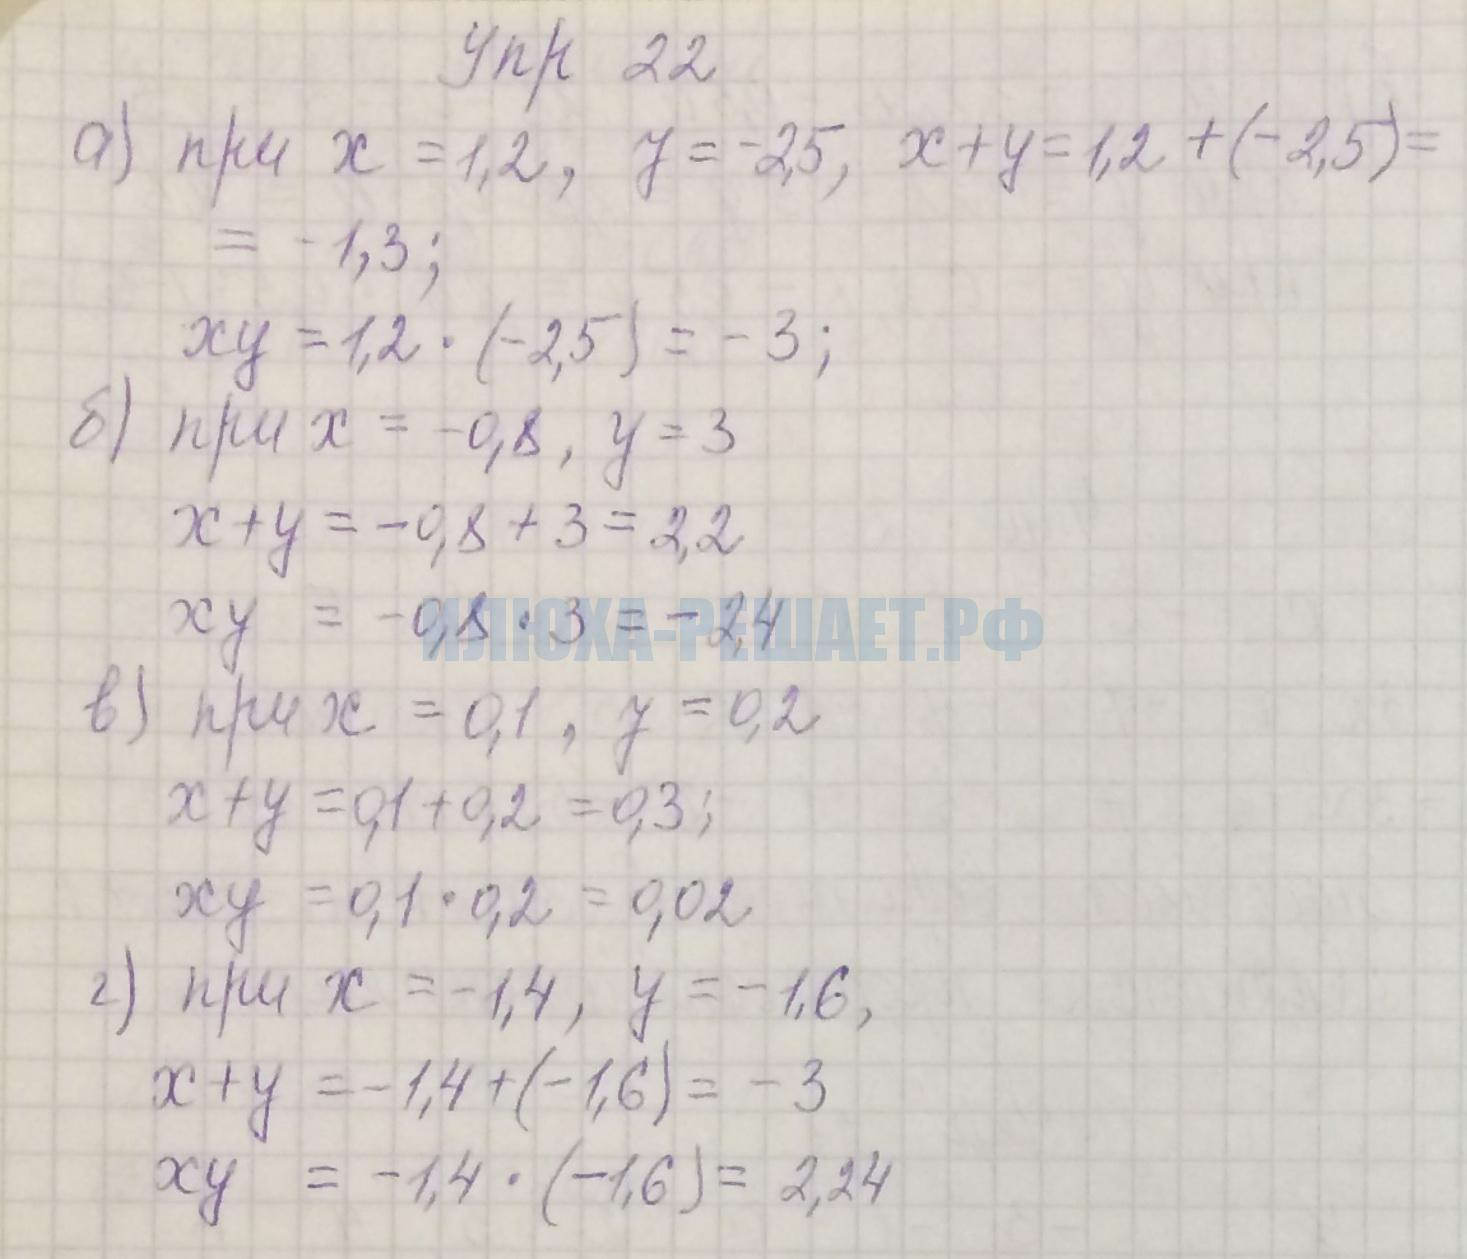 Упр 22
а) при x = 1,2, y = -2,5, x+y = 1,2 + (-2,5) =
= -1,3;
xy = 1,2 · (-2,5) = -3;
б) при x = -0,8, y = 3
x+y = -0,8 + 3 = 2,2
xy = -0,8 · 3 = -2,4
ИЛЮХА-РЕШАЕТ.РФ
в) при x = 0,1, y = 0,2
x+y = 0,1 + 0,2 = 0,3;
xy = 0,1 · 0,2 = 0,02
г) при x = -1,4, y = -1,6,
x+y = -1,4 + (-1,6) = -3
xy = -1,4 · (-1,6) = 2,24